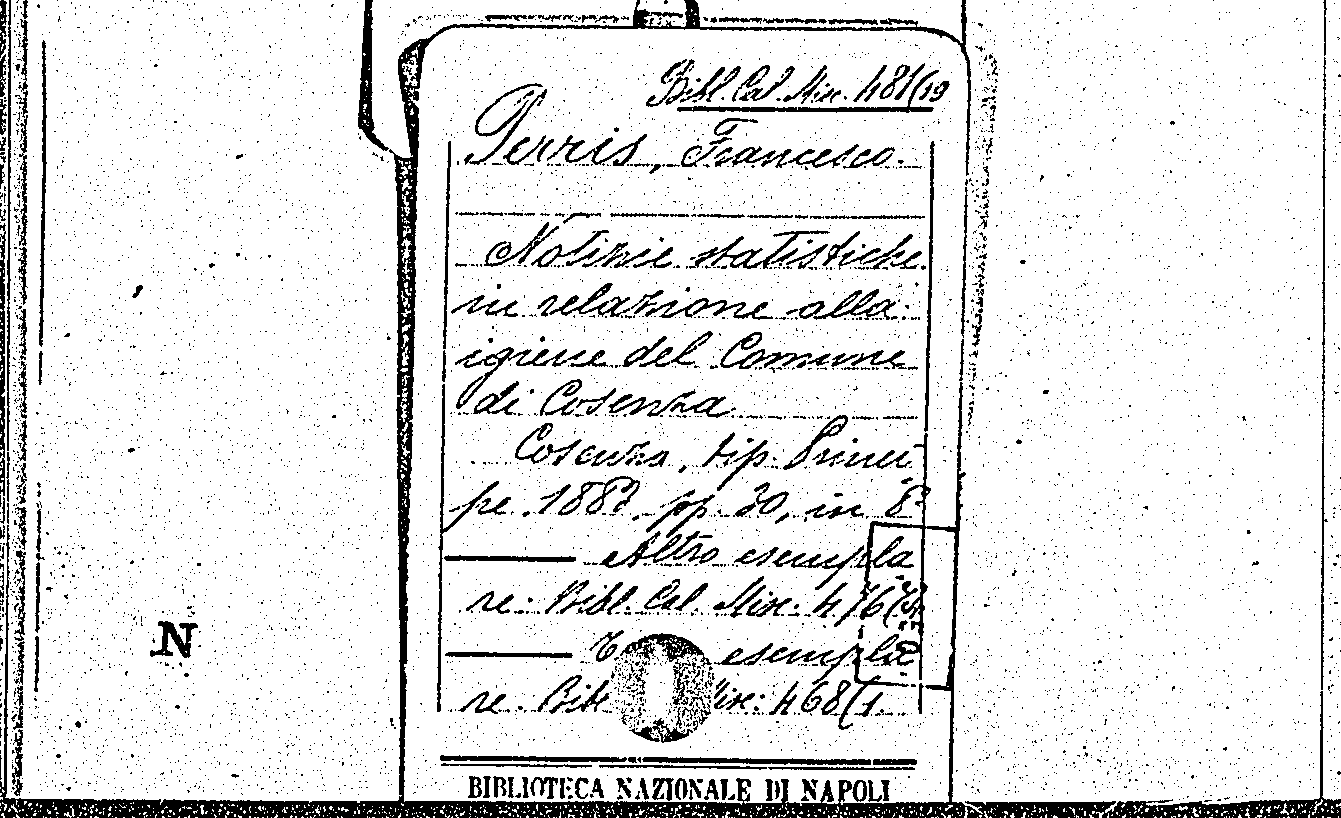 Bibl. Cal. Misc. 481(19
Perris, Francesco.
Notizie statistiche
in relazione alla
igiene del Comune
di Cosenza
Cosenza, tip. Princi
pe. 1883, pp. 30, in 8º
Altro esempla
re. Bibl. Cal. Misc. 476(
esempla
re. Bibl. Misc. 468(1.
BIBLIOTECA NAZIONALE DI NAPOLI
N